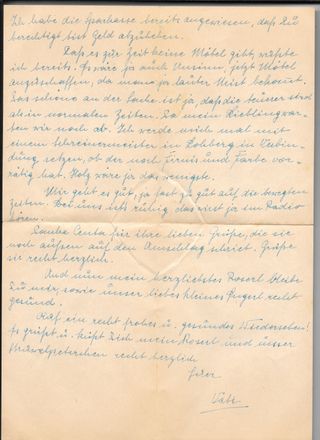 Ich habe die Sparkasse bereits angewiesen, daß Du
berechtigt bist Geld abzuheben.
Dass es zur Zeit keine Möbel gibt wußte
ich bereits. Es wäre ja auch Unsinn, jetzt Möbel
anzuschaffen, da man ja lauter Mist bekommt.
Das schöne an der Sache ist ja, daß die teurer sind
als in normalen Zeiten. Da mein Liebling war-
ten wir noch ab. Ich werde mich mal mit
einem Schreinermeister in Verbin-
dung setzen, ob der noch Firnis und Farbe vor-
rätig hat. Holz wäre ja das wenigste.
Mir geht es gut, ja fast zu gut auf die bewegten
Zeiten. Bei uns ists ruhig das wirst ja im Radio
hören.
Danke Centa für ihre lieben Grüße, die sie
noch außen auf den Umschlag schrieb. Grüße
sie recht herzlich.
Und nun mein herzliebstes Roserl bleibe
Du mir, sowie unser liebes kleines recht
gesund.
Auf ein recht frohes u. gesundes Wiedersehen!
Es grüßt u. küßt Dich mein Roserl und unser
recht herzlich